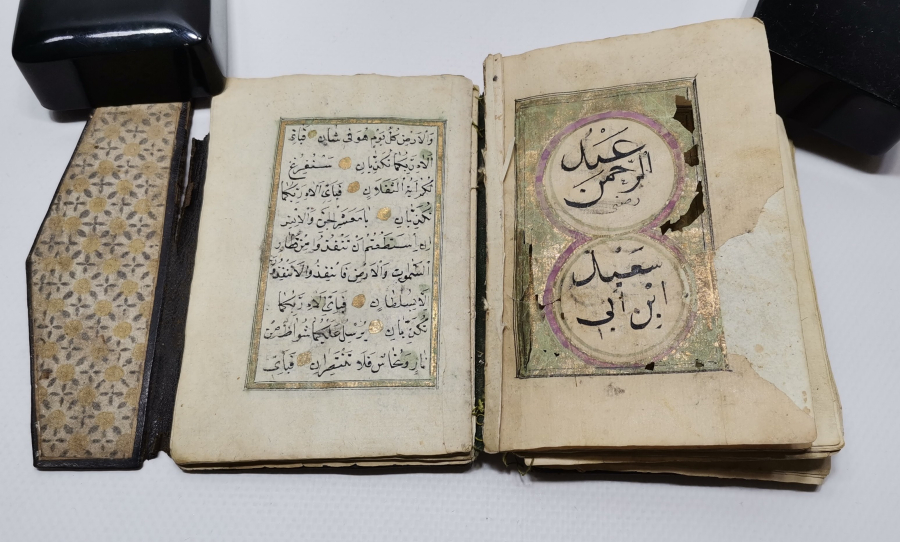 عَبْدُ
الرَّحْمٰنِ
سَعِيد
ابْنِ أَبِي
وَالْاَرْضِ كُلَّ يَوْمٍ هُوَ فِي شَاْنٍ فَبِاَيِّ
اٰلَاءِ رَبِّكُمَا تُكَذِّبَانِ سَنَفْرُغُ
لَكُمْ اَيُّهَ الثَّقَلَانِ فَبِاَيِّ اٰلَاءِ رَبِّكُمَا
تُكَذِّبَانِ يَا مَعْشَرَ الْجِنِّ وَالْاِنْسِ
اِنِ اسْتَطَعْتُمْ اَنْ تَنْفُذُوا مِنْ اَقْطَارِ
السَّمٰوَاتِ وَالْاَرْضِ فَانْفُذُوا لَا تَنْفُذُونَ
اِلَّا بِسُلْطَانٍ فَبِاَيِّ اٰلَاءِ رَبِّكُمَا
تُكَذِّبَانِ يُرْسَلُ عَلَيْكُمَا شُوَاظٌ مِنْ
نَارٍ وَنُحَاسٌ فَلَا تَنْتَصِرَانِ فَبِاَيِّ